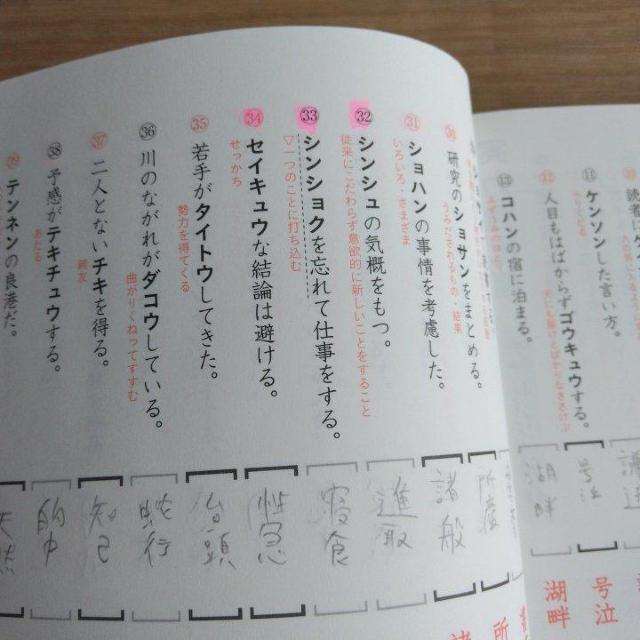 ⑫ コハンの宿に泊まる。
湖畔
湖畔
⑪ ケンソンした言い方。
人目もはばからずゴウキュウする。
号泣
号泣
研究のショサンをまとめる。
㉛ ショハンの事情を考慮した。
いろいろ・さまざま
諸般
㉜ シンシュの気概をもつ。
従来にこだわらず意欲的に新しいことをすること
進取
㉝ シンショクを忘れて仕事をする。
▽一つのことに打ち込む
寝食
㉞ セイキュウな結論は避ける。
せっかち
性急
㉟ 若手がタイトウしてきた。
勢力を得てくる
台頭
㊱ 川のながれがダコウしている。
曲がりくねってすすむ
蛇行
㊲ 二人とないチキを得る。
親友
知己
㊳ 予感がテキチュウする。
あたる
的中
テンネンの良港だ。